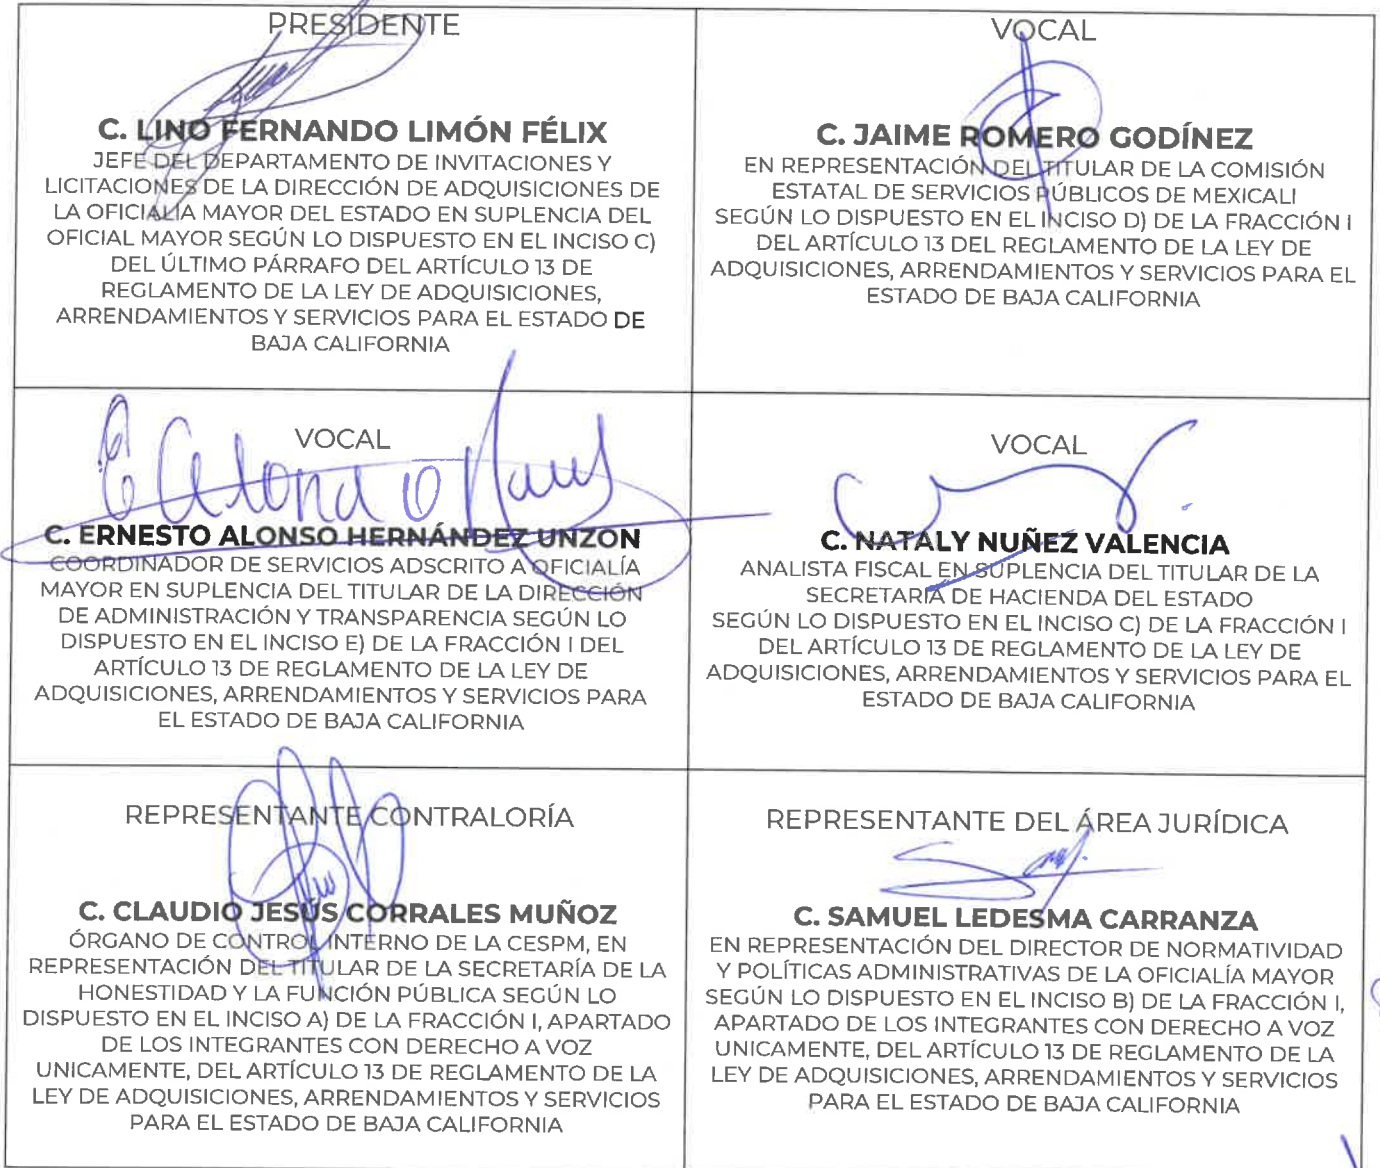 PRESIDENTE
C. LINO FERNANDO LIMÓN FÉLIX
JEFE DEL DEPARTAMENTO DE INVITACIONES Y
LICITACIONES DE LA DIRECCIÓN DE ADQUISICIONES DE
LA OFICIALÍA MAYOR DEL ESTADO EN SUPLENCIA DEL
OFICIAL MAYOR SEGÚN LO DISPUESTO EN EL INCISO C)
DEL ÚLTIMO PÁRRAFO DEL ARTÍCULO 13 DE
REGLAMENTO DE LA LEY DE ADQUISICIONES,
ARRENDAMIENTOS Y SERVICIOS PARA EL ESTADO DE
BAJA CALIFORNIA
VOCAL
C. JAIME ROMERO GODÍNEZ
EN REPRESENTACIÓN DEL TITULAR DE LA COMISIÓN
ESTATAL DE SERVICIOS PÚBLICOS DE MEXICALI
SEGÚN LO DISPUESTO EN EL INCISO D) DE LA FRACCIÓN I
DEL ARTÍCULO 13 DEL REGLAMENTO DE LA LEY DE
ADQUISICIONES, ARRENDAMIENTOS Y SERVICIOS PARA EL
ESTADO DE BAJA CALIFORNIA
VOCAL
C. ERNESTO ALONSO HERNÁNDEZ UNZON
COORDINADOR DE SERVICIOS ADSCRITO A OFICIALÍA
MAYOR EN SUPLENCIA DEL TITULAR DE LA DIRECCIÓN
DE ADMINISTRACIÓN Y TRANSPARENCIA SEGÚN LO
DISPUESTO EN EL INCISO E) DE LA FRACCIÓN I DEL
ARTÍCULO 13 DE REGLAMENTO DE LA LEY DE
ADQUISICIONES, ARRENDAMIENTOS Y SERVICIOS PARA
EL ESTADO DE BAJA CALIFORNIA
VOCAL
C. NATALY NUÑEZ VALENCIA
ANALISTA FISCAL EN SUPLENCIA DEL TITULAR DE LA
SECRETARÍA DE HACIENDA DEL ESTADO
SEGÚN LO DISPUESTO EN EL INCISO C) DE LA FRACCIÓN I
DEL ARTÍCULO 13 DE REGLAMENTO DE LA LEY DE
ADQUISICIONES, ARRENDAMIENTOS Y SERVICIOS PARA EL
ESTADO DE BAJA CALIFORNIA
REPRESENTANTE CONTRALORÍA
C. CLAUDIO JESÚS CORRALES MUÑOZ
ÓRGANO DE CONTROL INTERNO DE LA CESPM, EN
REPRESENTACIÓN DEL TITULAR DE LA SECRETARÍA DE LA
HONESTIDAD Y LA FUNCIÓN PÚBLICA SEGÚN LO
DISPUESTO EN EL INCISO A) DE LA FRACCIÓN I, APARTADO
DE LOS INTEGRANTES CON DERECHO A VOZ
UNICAMENTE, DEL ARTÍCULO 13 DE REGLAMENTO DE LA
LEY DE ADQUISICIONES, ARRENDAMIENTOS Y SERVICIOS
PARA EL ESTADO DE BAJA CALIFORNIA
REPRESENTANTE DEL ÁREA JURÍDICA
C. SAMUEL LEDESMA CARRANZA
EN REPRESENTACIÓN DEL DIRECTOR DE NORMATIVIDAD
Y POLÍTICAS ADMINISTRATIVAS DE LA OFICIALÍA MAYOR
SEGÚN LO DISPUESTO EN EL INCISO B) DE LA FRACCIÓN I,
APARTADO DE LOS INTEGRANTES CON DERECHO A VOZ
UNICAMENTE, DEL ARTÍCULO 13 DE REGLAMENTO DE LA
LEY DE ADQUISICIONES, ARRENDAMIENTOS Y SERVICIOS
PARA EL ESTADO DE BAJA CALIFORNIA